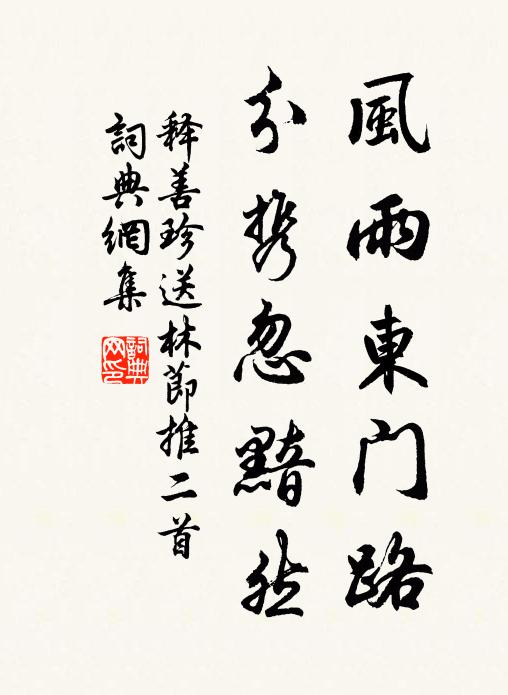 風雨東门路
分携忽黯然
释善珍送林節推二首
詞典網集
詞典网印